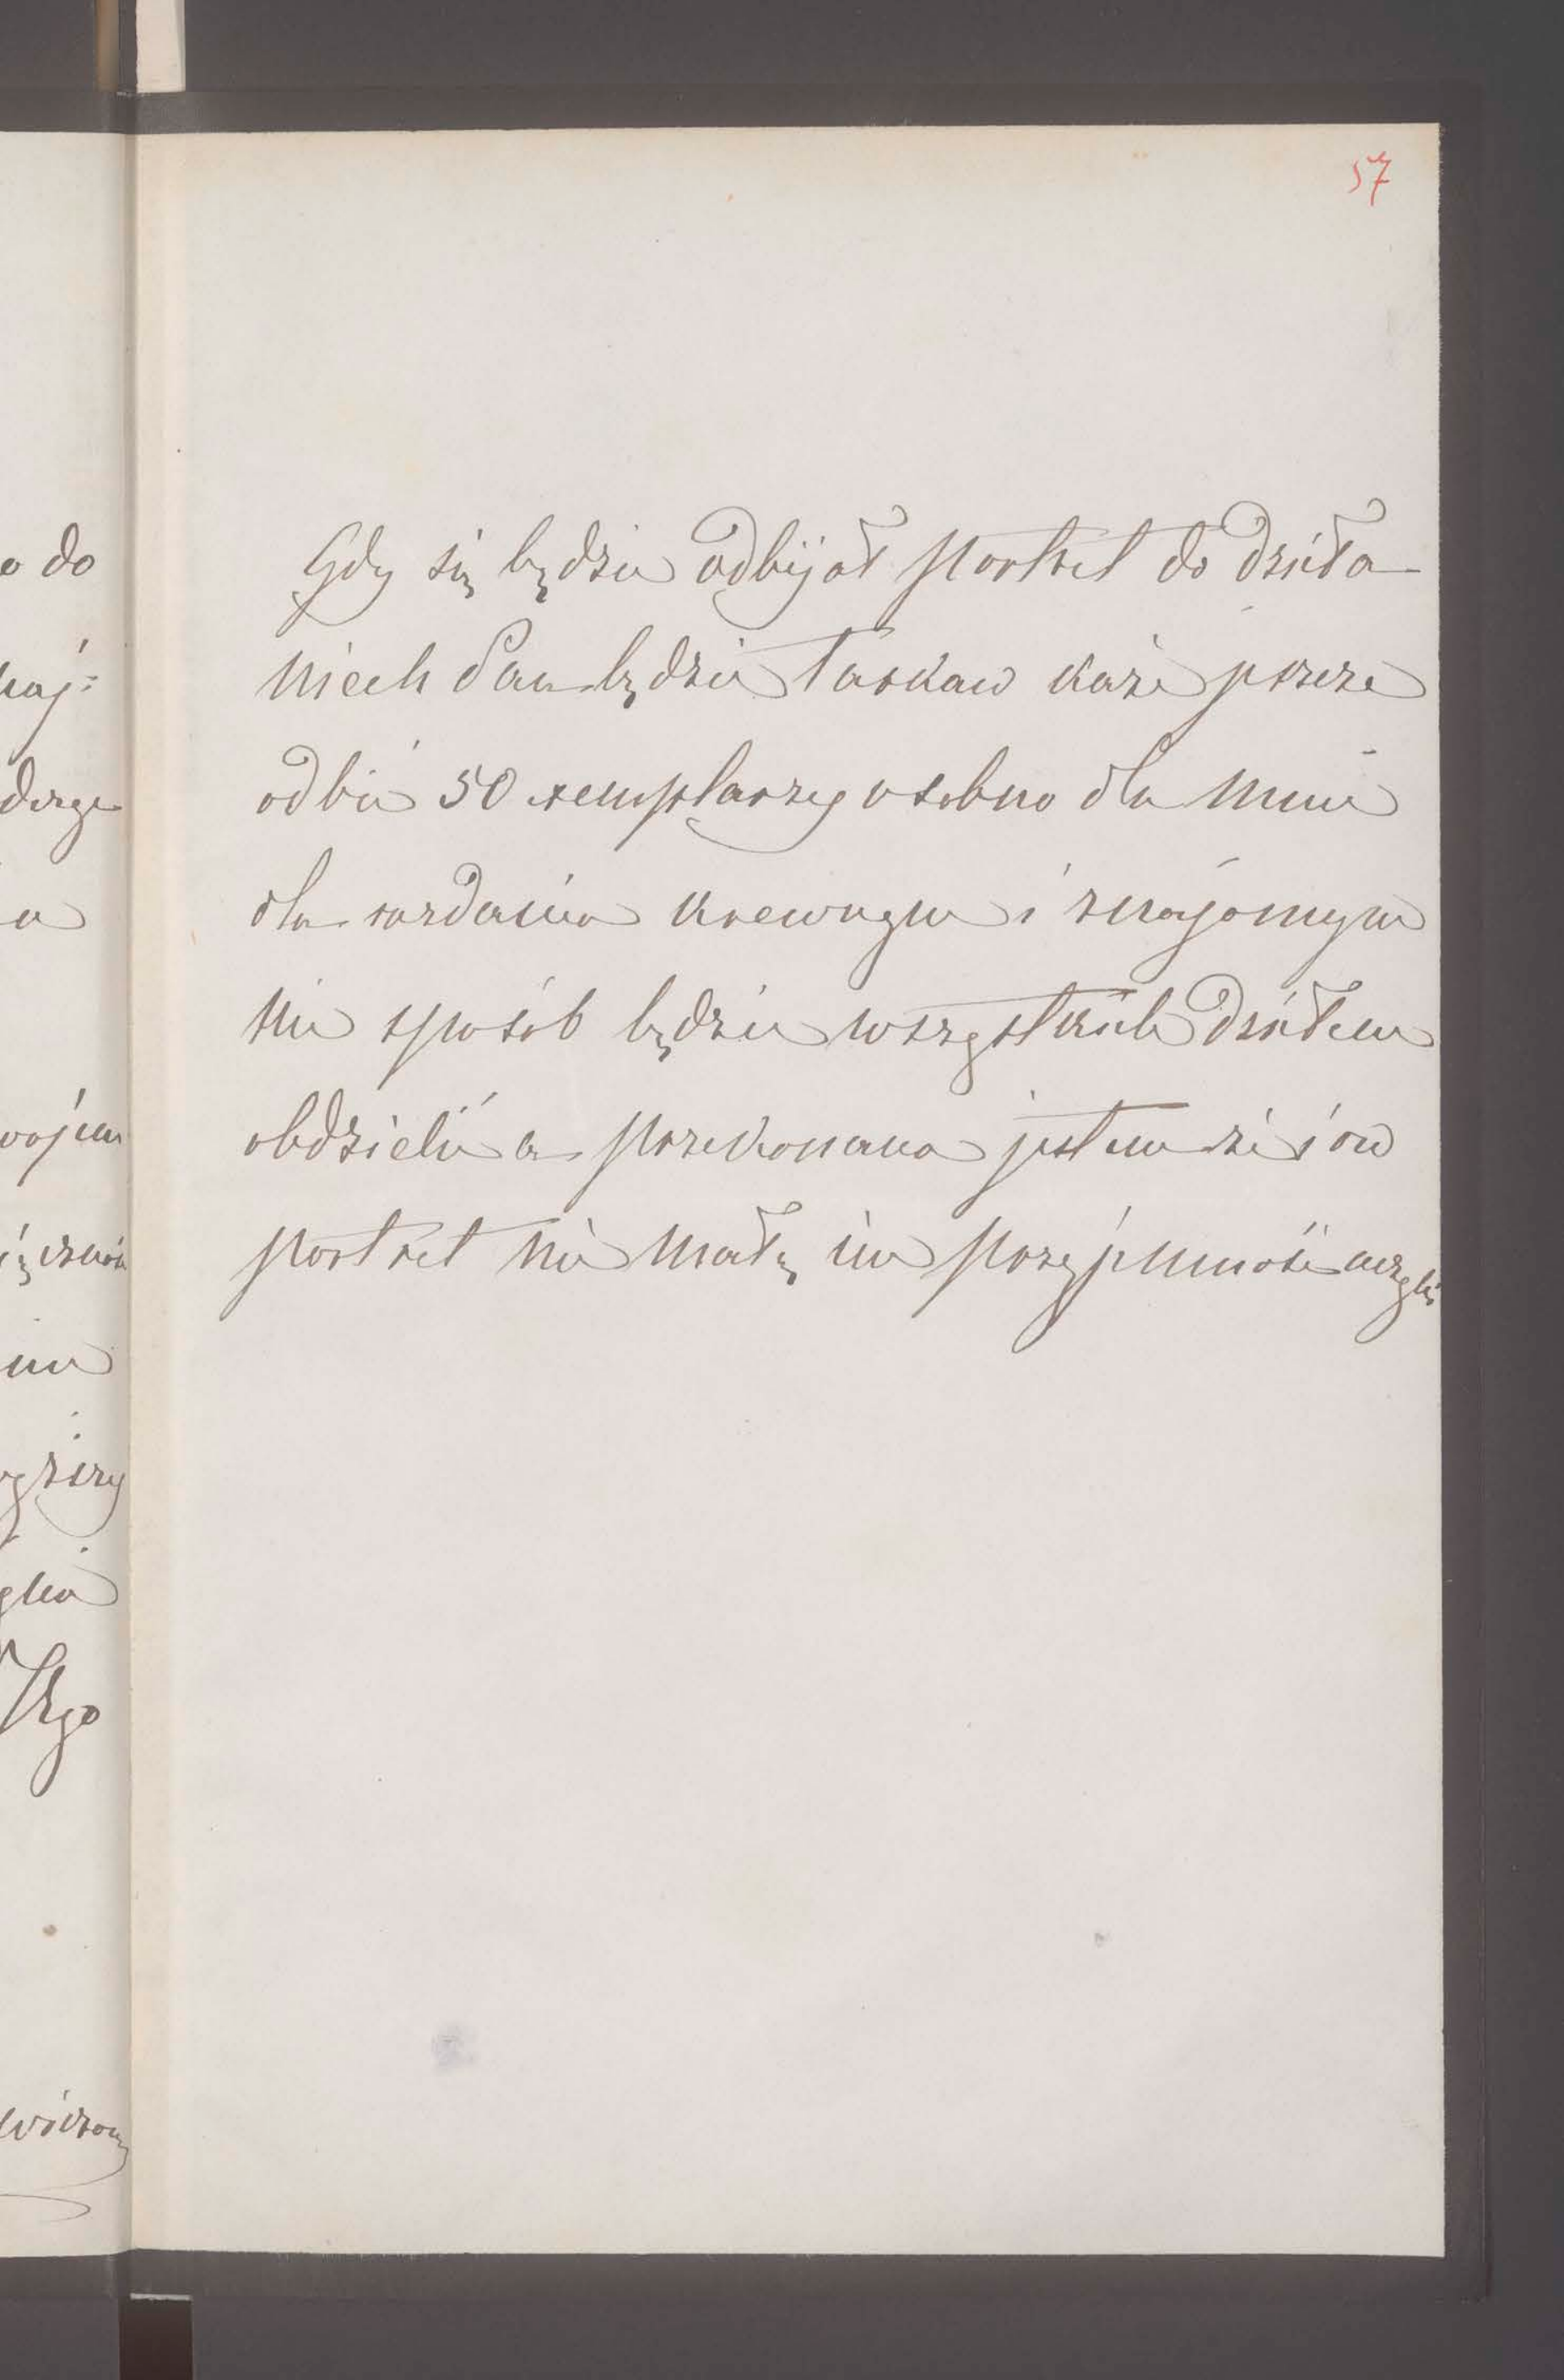 57
Gdy się będzie odbijał portret do dzieła
niech Pan będzie łaskaw każe proszę
odbić 50 xemplarzy osobno dla mnie
dla rozdania krewnym i znajomym
nie sposób będzie wszystkich dziełem
obdzielić a przekonana jestem że i ów
portret nie małą im przyjemność uczyni
o do
naj=
wojem
nie
Jego